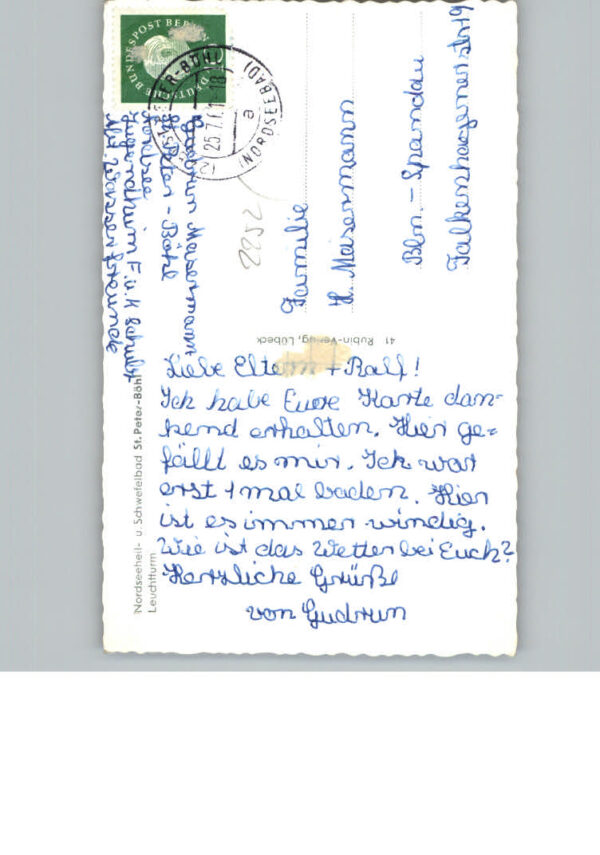 DEUTSCHE BUNDESPOST BERLIN
(NORDSEEBAD)
25.7.61-18
a
Gudrun Meisermann
St. Peter-Böhl
Nordsee
Jugendheim F. u. K. Schulz
2252
Familie
H. Meisermann
Bln. - Spandau
Falkenhagenerstr 19
41 Rubin-Verlag, Lübeck
Liebe Eltern + Ralf!
Ich habe Euere Karte dan-
kend erhalten. Hier ge=
fällt es mir. Ich war
erst 1 mal baden. Hier
ist es immer windig.
Wie ist das Wetter bei Euch?
Herzliche Grüße
von Gudrun
Nordseeheil- u. Schwefelbad St. Peter-Böhl
Leuchtturm